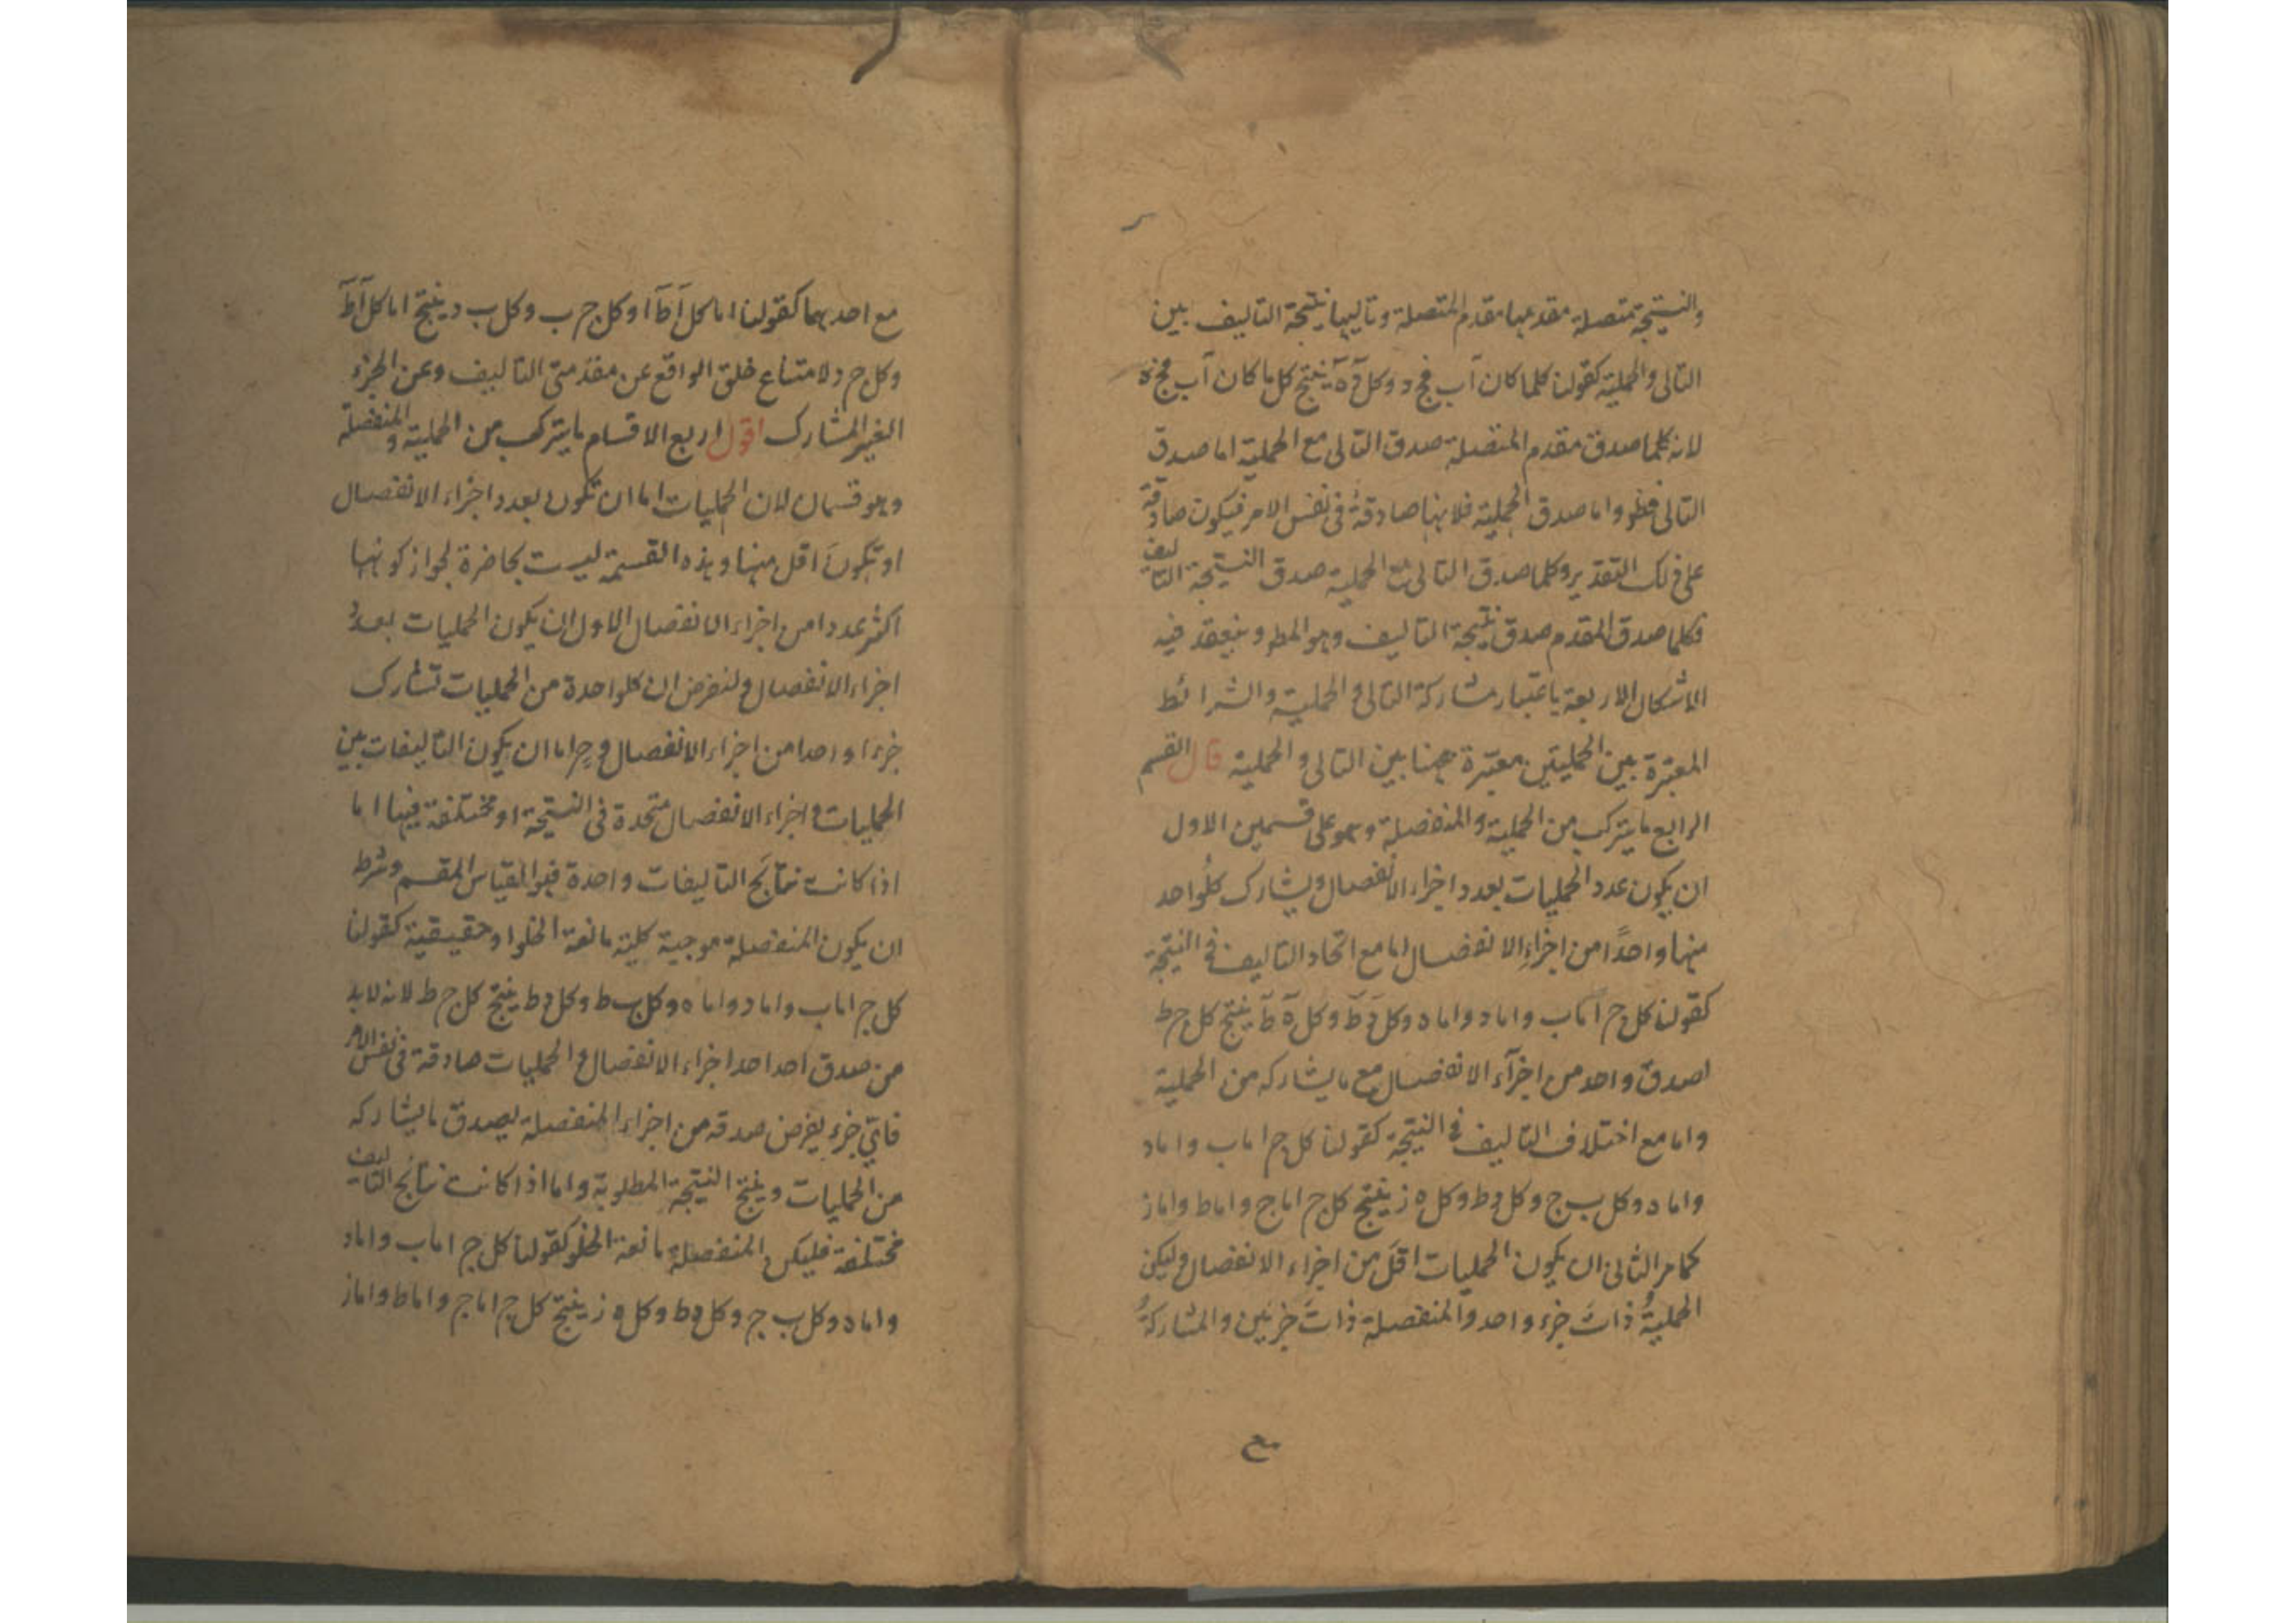 والنتيجة متصلة مقدمها مقدم المتصلة وتاليها نتيجة التاليف بين
التالى والحملية كقولنا كلما كان آب فج د وكل د ه ينتج كل ما كان آب فج ه
لانه كلما صدق مقدم المتصلة صدق التالى مع الحملية اما صدق
التالى فظ واما صدق الحملية فلانها صادقة فى نفس الامر فيكون صادقة
على ذلك التقدير وكلما صدق التالى مع الحملية صدق النتيجة التاليف
فكلما صدق المقدم صدق نتيجة التاليف وهو المط وينعقد فيه
الاشكال الاربعة باعتبار مشاركة التالى والحملية والشرائط
المعتبرة بين الحمليتين معتبرة ههنا بين التالى والحملية قال القسم
الرابع ما يتركب من الحملية والمنفصلة وهو على قسمين الاول
ان يكون عدد الحمليات بعدد اجزاء الانفصال ويشارك كلواحد
منها واحدًا من اجزاء الانفصال اما مع اتحاد التاليف فى النتيجة
كقولنا كل ج اما ب واما د واما ه وكل د ط وكل ه ط ينتج كل ج ط
لصدق واحد من اجزآء الانفصال مع ما يشاركه من الحملية
واما مع اختلاف التاليف فى النتيجة كقولنا كل ج اما ب واما د
واما ه وكل ب ج وكل د ط وكل ه ز ينتج كل ج اما ج واما ط واما ز
كما مر الثانى ان يكون الحمليات اقل من اجزاء الانفصال وليكن
الحملية ذات جزء واحد والمنفصلة ذات جزئين والمشاركة
مع
مع احدهما كقولنا اما كل آ ط او كل ج ب وكل ب د ينتج اما كل آ ط
وكل ج د لامتناع خلو الواقع عن مقدمتى التاليف وعن الجزء
الغير المشارك اقول رابع الاقسام ما يتركب من الحملية والمنفصلة
وهو قسمان لان الحمليات اما ان تكون بعدد اجزاء الانفصال
او تكون اقل منها وهذه القسمة ليست بحاضرة لجواز كونها
اكثر عددا من اجزاء الانفصال الاول ان يكون الحمليات بعدد
اجزاء الانفصال ولنفرض ان كلواحدة من الحمليات تشارك
جزءا واحدا من اجزاء الانفصال وح اما ان يكون التاليفات بين
الحمليات واجزاء الانفصال متحدة فى النتيجة او مختلفة فيها اما
اذا كانت نتائج التاليفات واحدة فهو القياس المقسم وشرط
ان يكون المنفصلة موجبة كلية مانعة الخلو او حقيقية كقولنا
كل ج اما ب واما د واما ه وكل ب ط وكل د ط ينتج كل ج ط لانه لابد
من صدق احد احد اجزاء الانفصال والحمليات صادقة فى نفس الامر
فاىّ جزء يفرض صدقه من اجزاء المنفصلة يصدق ما يشاركه
من الحمليات وينتج النتيجة المطلوبة واما اذا كانت نتائج التاليف
مختلفة فليكن المنفصلة مانعة الخلو كقولنا كل ج اما ب واما د
واما ه وكل ب ج وكل د ط وكل ه ز ينتج كل ج اما ج واما ط واما ز